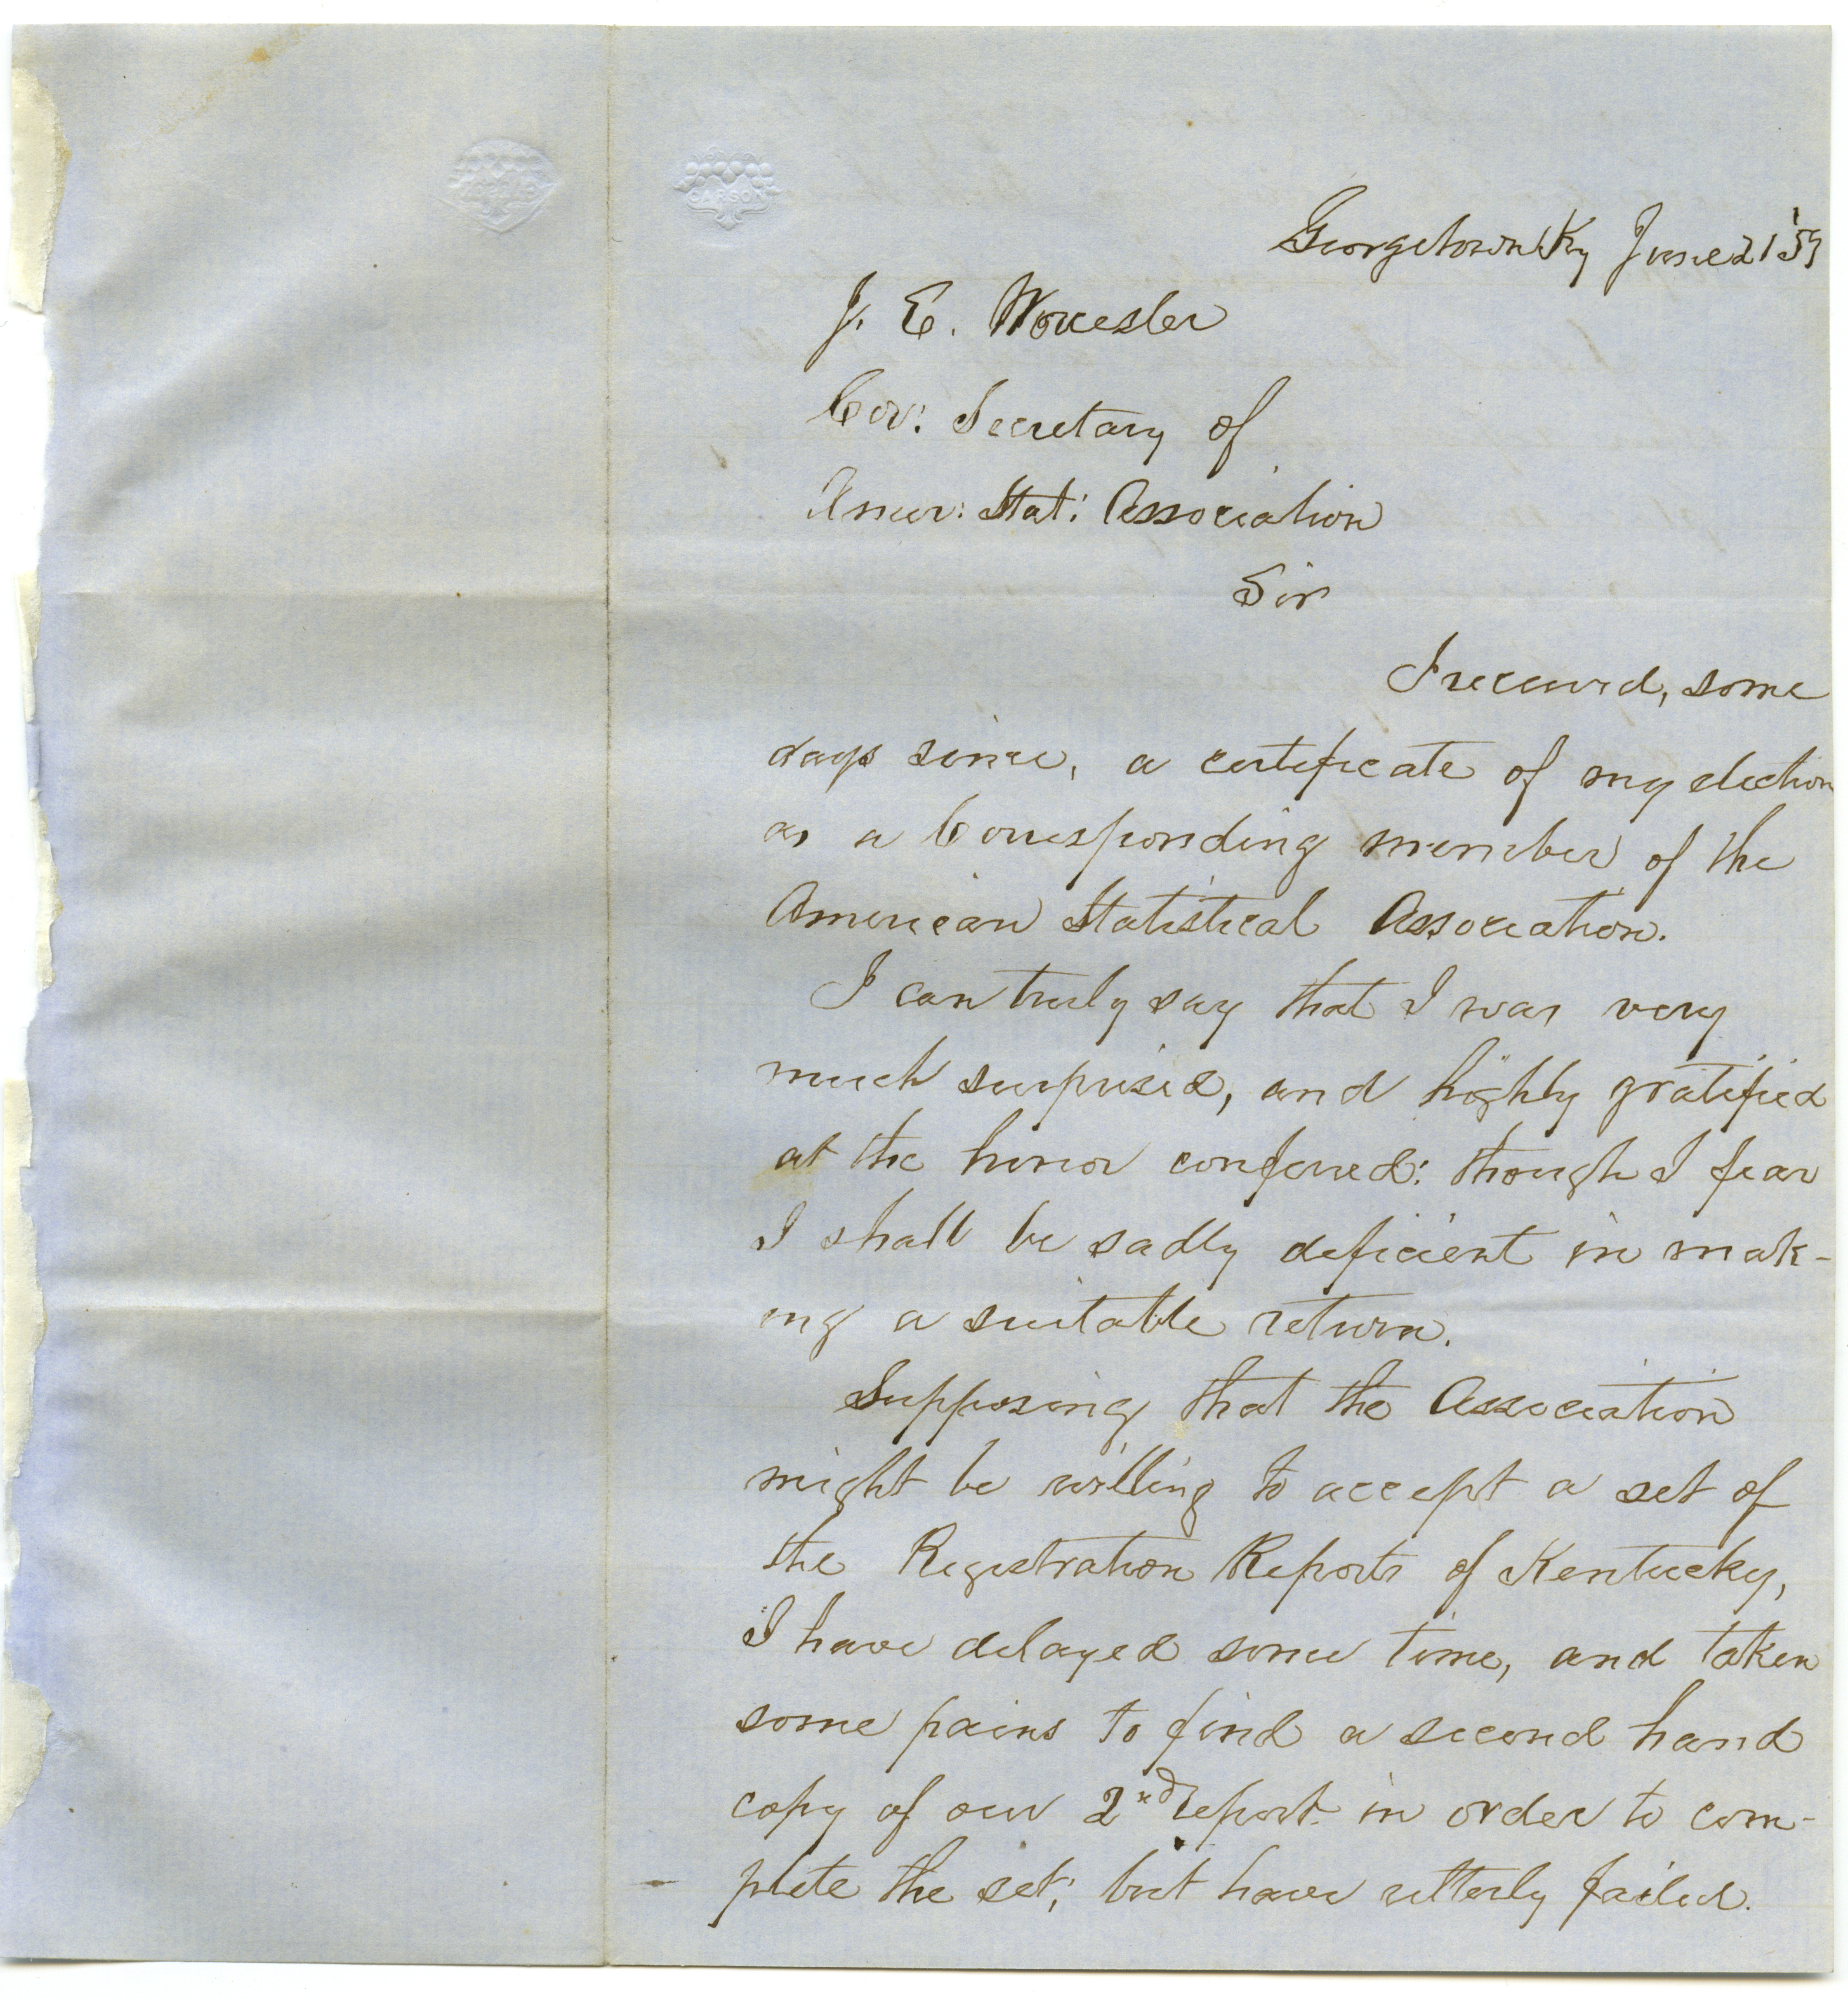 CARSON
Georgetown Ky June 21 '59
J. E. Worcester
Cor: Secretary of
Amer: Stat: Association
Sir
I received, some
days since, a certificate of my election
as a Corresponding member of the
American Statistical Association.
I can truly say that I was very
much surprised, and highly gratified
at the honor conferred: though I fear
I shall be sadly deficient in mak-
ing a suitable return.
Supposing that the Association
might be willing to accept a set of
the Registration Reports of Kentucky,
I have delayed some time, and taken
some pains to find a second hand
copy of our 2nd report in order to com-
plete the set; but have utterly failed.